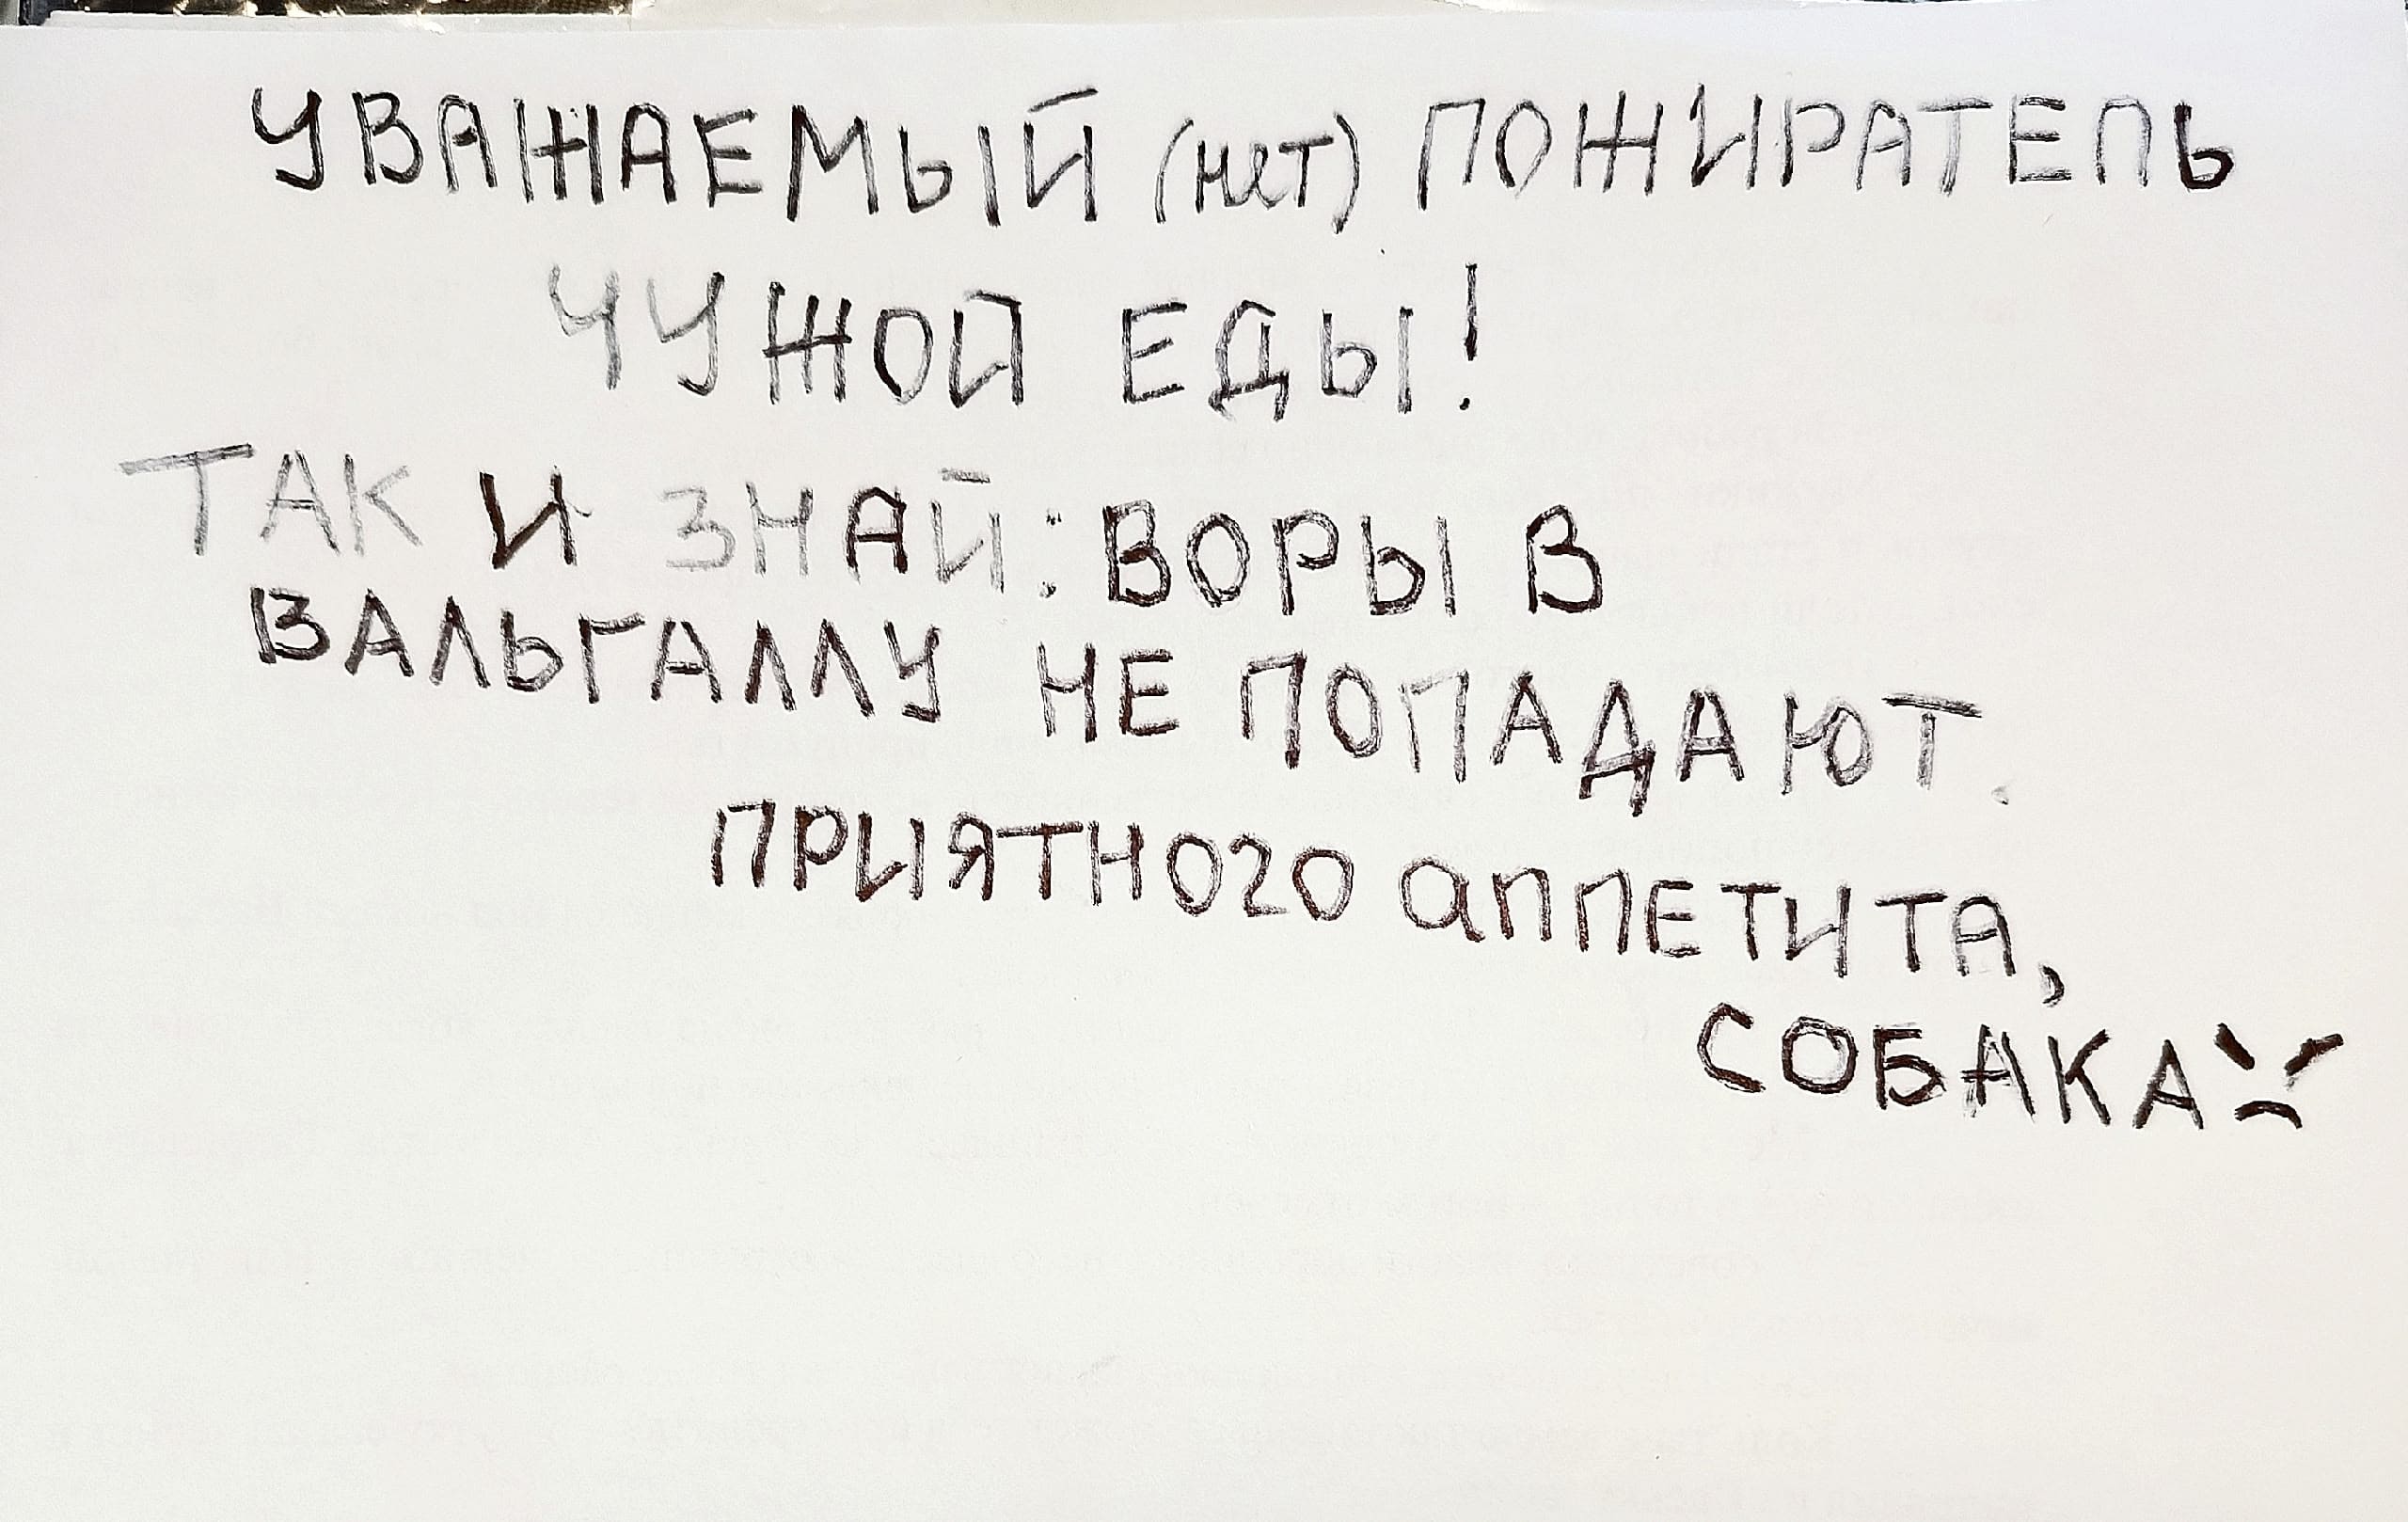 УВАЖАЕМЫЙ (нет) ПОЖИРАТЕЛЬ
ЧУЖОЙ ЕДЫ!
ТАК И ЗНАЙ: ВОРЫ В
ВАЛЬГАЛЛУ НЕ ПОПАДАЮТ.
ПРИЯТНОГО АППЕТИТА,
СОБАКА